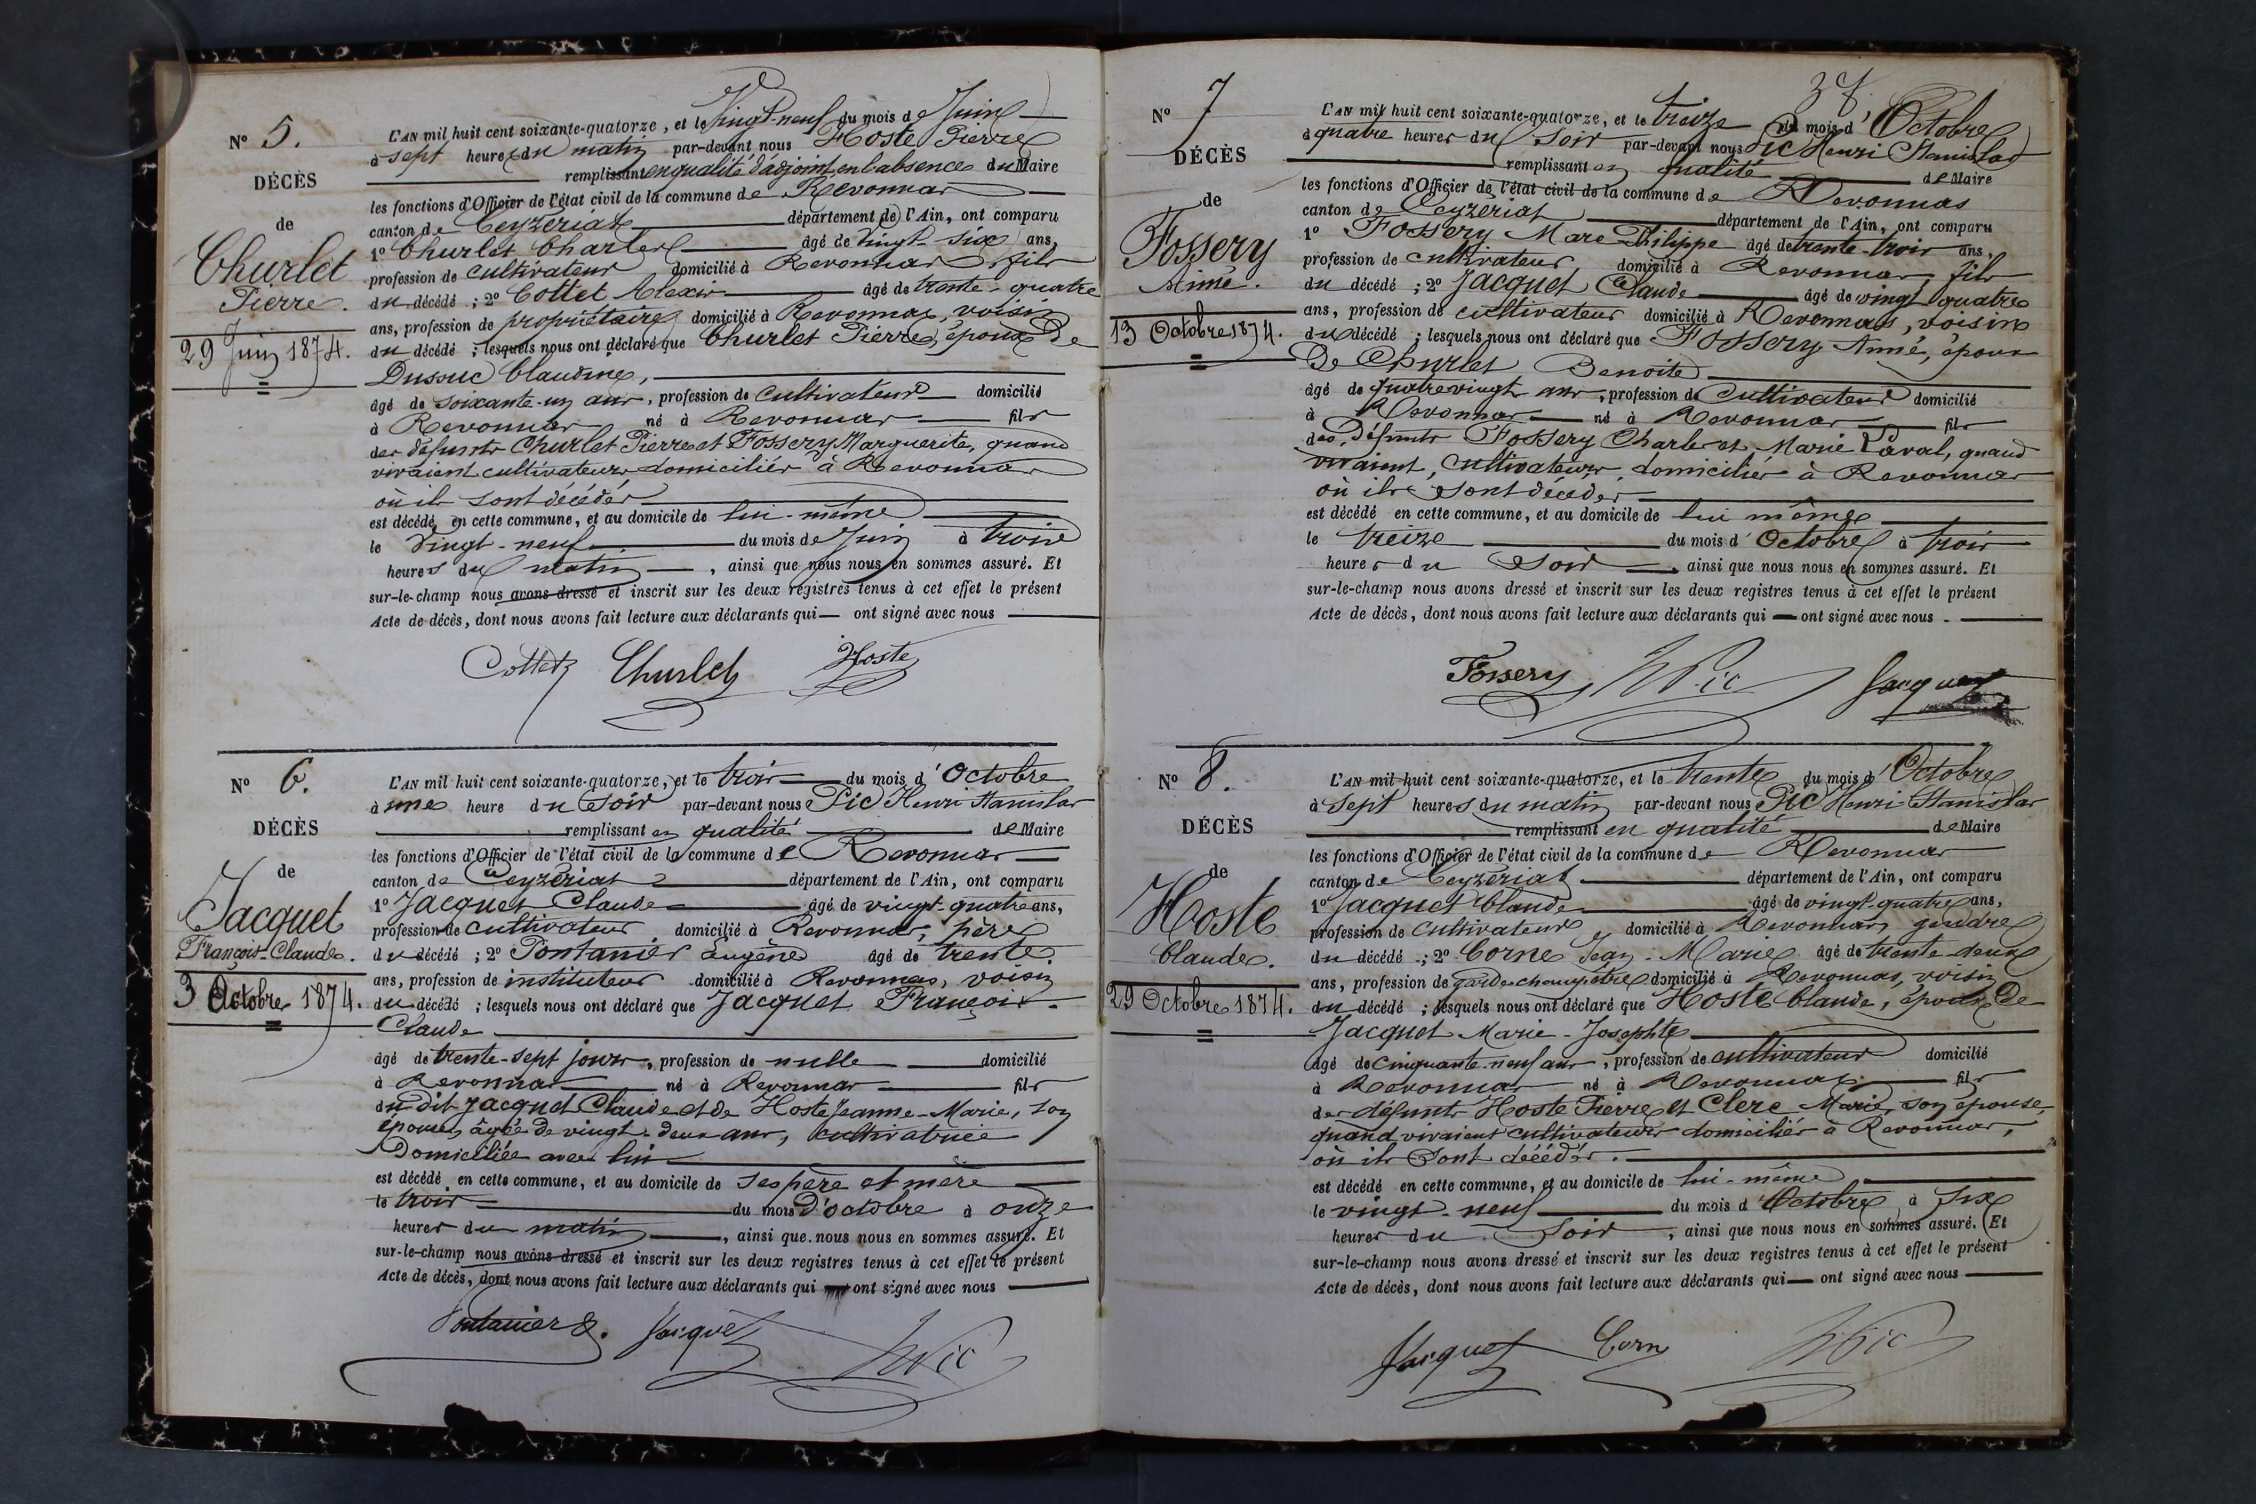 N° 5.
DÉCÈS
de
Churlet
Pierre.
29 Juin 1874.
L'AN mil huit cent soixante-quatorze, et le Vingt-neuf du mois de Juin
à sept heures du matin par-devant nous Hoste Pierre
remplissant en qualité d'adjoint en l'absence du Maire
les fonctions d'Officier de l'état civil de la commune de Revonnas
canton de Ceyzériat département de l'Ain, ont comparu
1° Churlet Charles âgé de vingt-six ans,
profession de cultivateur domicilié à Revonnas fils
du décédé ; 2° Cottet Alexis âgé de trente-quatre
ans, profession de propriétaire domicilié à Revonnas, voisin
du décédé ; lesquels nous ont déclaré que Churlet Pierre, époux de
Dusouc Claudine,
âgé de soixante-un ans, profession de cultivateur domicilié
à Revonnas né à Revonnas fils
des défunts Churlet Pierre et Fossery Marguerite, quand
vivaient cultivateurs domiciliés à Revonnas
où ils sont décédés
est décédé en cette commune, et au domicile de lui-même
le vingt-neuf du mois de Juin à trois
heures du matin, ainsi que nous nous en sommes assuré. Et
sur-le-champ nous avons dressé et inscrit sur les deux registres tenus à cet effet le présent
Acte de décès, dont nous avons fait lecture aux déclarants qui — ont signé avec nous
Cottet Churlet Hoste
N° 6.
DÉCÈS
de
Jacquet
François-Claude.
3 Octobre 1874.
L'AN mil huit cent soixante-quatorze, et le trois du mois d'Octobre
à une heure du soir par-devant nous Pic Henri Stanislas
remplissant en qualité de Maire
les fonctions d'Officier de l'état civil de la commune de Revonnas
canton de Ceyzériat département de l'Ain, ont comparu
1° Jacquet Claude âgé de vingt-quatre ans,
profession de cultivateur domicilié à Revonnas, père
du décédé ; 2° Pontanier Eugène âgé de trente
ans, profession de instituteur domicilié à Revonnas, voisin
du décédé ; lesquels nous ont déclaré que Jacquet François-
Claude
âgé de trente-sept jours, profession de nulle domicilié
à Revonnas né à Revonnas fils
du dit Jacquet Claude et de Hoste Jeanne-Marie, son
épouse, âgée de vingt-deux ans, cultivatrice
Domiciliée avec lui
est décédé en cette commune, et au domicile de ses père et mère
le trois du mois d'octobre à onze
heures du matin, ainsi que nous nous en sommes assuré. Et
sur-le-champ nous avons dressé et inscrit sur les deux registres tenus à cet effet le présent
Acte de décès, dont nous avons fait lecture aux déclarants qui — ont signé avec nous
Pontanier E. Jacquet H Pic
37
N° 7
DÉCÈS
de
Fossery
Aimé.
13 Octobre 1874.
L'AN mil huit cent soixante-quatorze, et le treize du mois d'Octobre
à quatre heures du soir par-devant nous Pic Henri Stanislas
remplissant en qualité de Maire
les fonctions d'Officier de l'état civil de la commune de Revonnas
canton de Ceyzériat département de l'Ain, ont comparu
1° Fossery Marc Philippe âgé de trente-trois ans,
profession de cultivateur domicilié à Revonnas, fils
du décédé ; 2° Jacquet Claude âgé de vingt quatre
ans, profession de cultivateur domicilié à Revonnas, voisin
du décédé ; lesquels nous ont déclaré que Fossery Aimé, époux
De Churlet Benoite
âgé de quatrevingt ans, profession de Cultivateur domicilié
à Revonnas né à Revonnas fils
des Défunts Fossery Charles et Marie Laval, quand
vivaient, cultivateurs domiciliés à Revonnas
où ils sont décédés
est décédé en cette commune, et au domicile de lui même
le treize du mois d'Octobre à trois
heures du Soir, ainsi que nous nous en sommes assuré. Et
sur-le-champ nous avons dressé et inscrit sur les deux registres tenus à cet effet le présent
Acte de décès, dont nous avons fait lecture aux déclarants qui — ont signé avec nous.
Fossery H Pic Jacquet
N° 8.
DÉCÈS
de
Hoste
Claude.
29 Octobre 1874.
L'AN mil huit cent soixante-quatorze, et le trente du mois d'Octobre
à sept heures du matin par-devant nous Pic Henri Stanislas
remplissant en qualité de Maire
les fonctions d'Officier de l'état civil de la commune de Revonnas
canton de Ceyzériat département de l'Ain, ont comparu
1° Jacquet Claude âgé de vingt-quatre ans,
profession de cultivateur domicilié à Revonnas gendre
du décédé ; 2° Corne Jean-Marie âgé de trente deux
ans, profession de garde champêtre domicilié à Revonnas, voisin
du décédé ; lesquels nous ont déclaré que Hoste Claude, époux De
Jacquet Marie-Josephte
âgé de cinquante-neuf ans, profession de cultivateur domicilié
à Revonnas né à Revonnas fils
des défunts Hoste Pierre et Clerc Marie, son épouse,
quand vivaient cultivateurs domiciliés à Revonnas,
où ils sont décédés.
est décédé en cette commune, et au domicile de lui-même
le vingt-neuf du mois d'Octobre à six
heures du Soir, ainsi que nous nous en sommes assuré. Et
sur-le-champ nous avons dressé et inscrit sur les deux registres tenus à cet effet le présent
Acte de décès, dont nous avons fait lecture aux déclarants qui — ont signé avec nous
Jacquet Corn H Pic